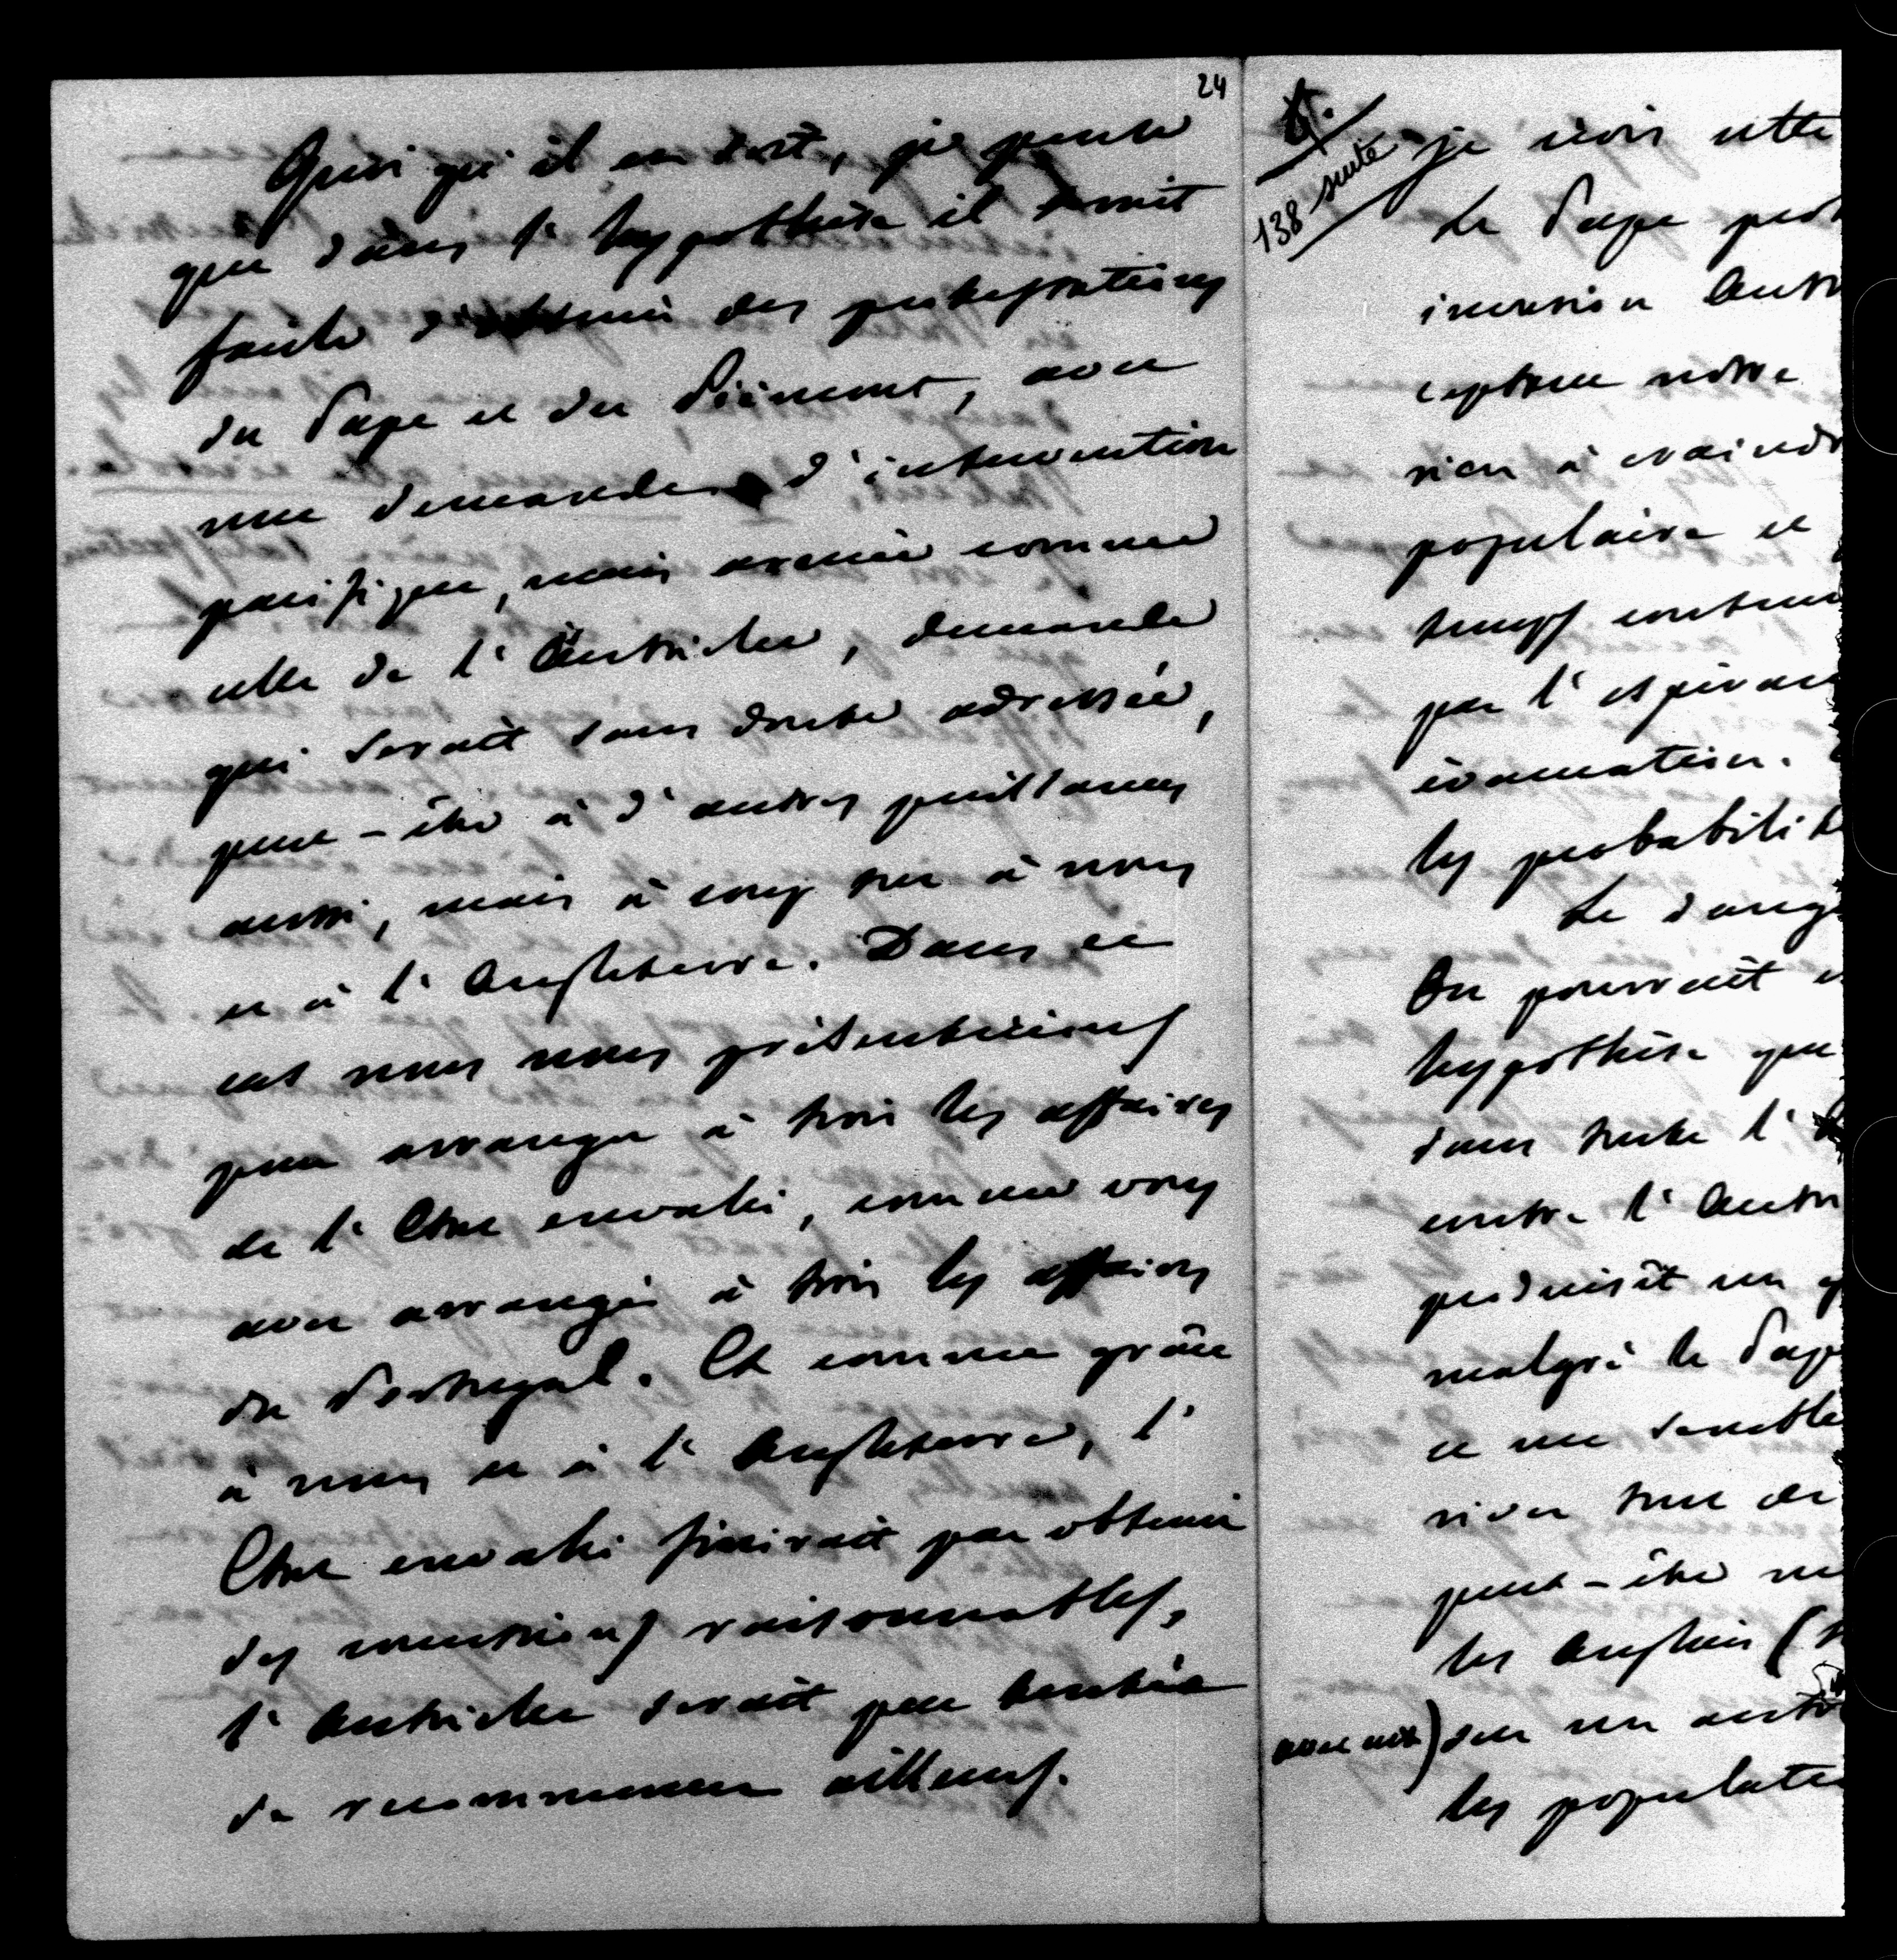 24
Quoi qu'il en soit, je pense
que dans l'hypothèse il serait
facile d'obtenir des protestations
du Pape et du Piémont, avec
une demande d'intervention
pacifique, mais armée comme
celle de l'Autriche, demande
qui serait sans doute adressée,
peut-être à d'autres puissances
aussi, mais à coup sur à nous
et à l'Angleterre. Dans ce
cas nous nous présenterions
pour arranger à trois les affaires
de l'Etat envahi, comme vous
avez arrangé à trois les affaires
du Portugal. Et comme grâce
à nous et à l'Angleterre, l'
Etat envahi finirait par obtenir
des concessions raisonnables,
l'Autriche serait peu tentée
de recommencer ailleurs.
6.
138 suite
je crois cette
Le Pape prot
invasion Autr
capture notre
rien à craindr
populaire et
temps contenu
par l'espéranc
évacuation.
les probabilité
Le dang
On pourrait
hypothèse que
dans toute l'
contre l'Autr
produisît un
malgré le Pap
ce me semble
river tout de
peut-être
les Anglais (
) sur un autre
les populati